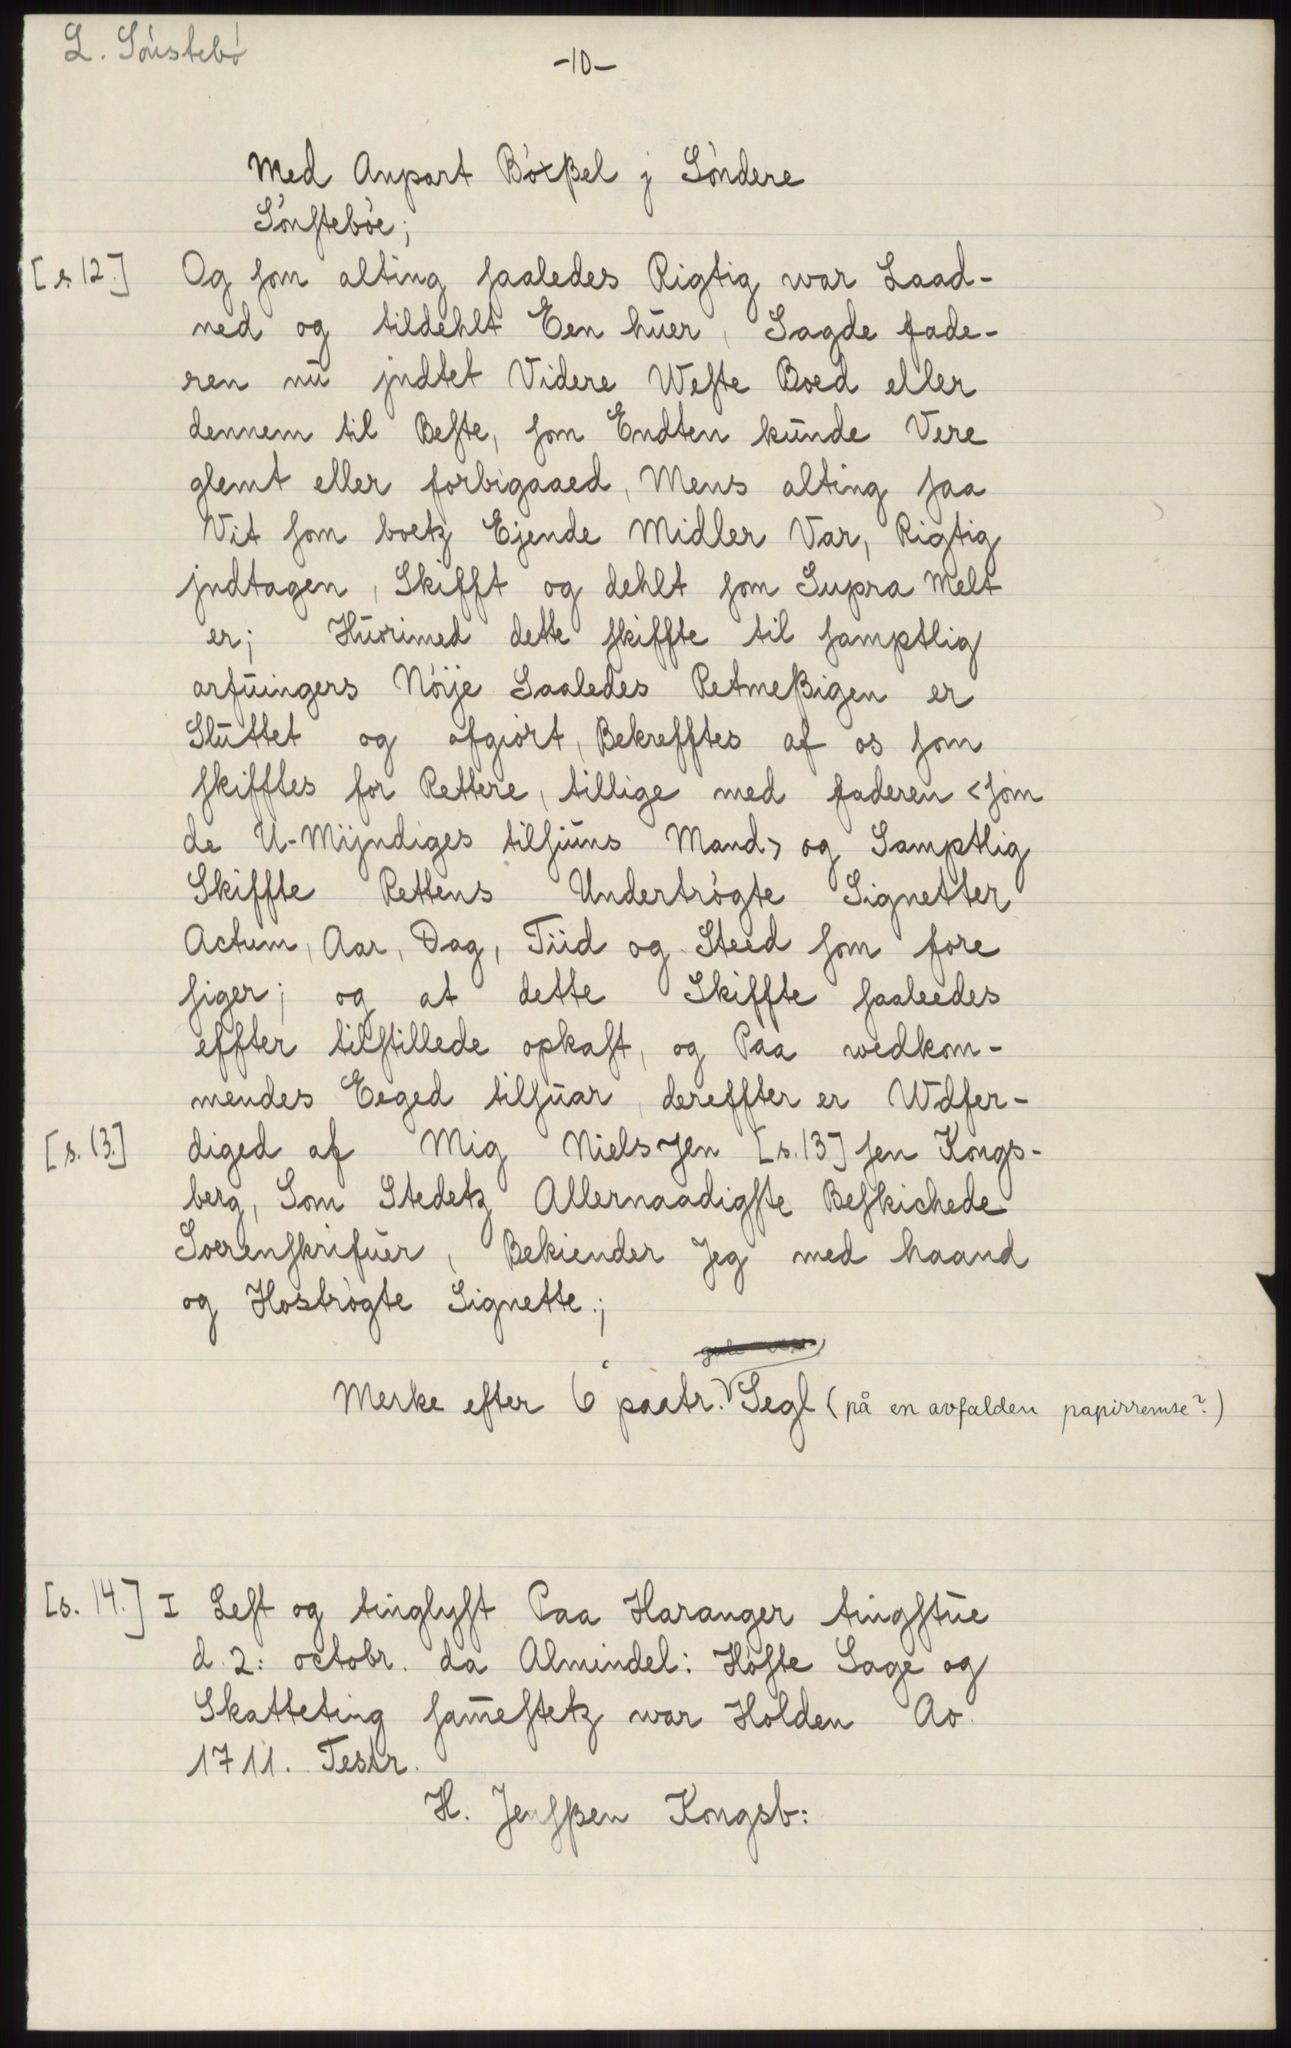 L. Sónstebó
-10-
Med Anpart Bóxßel j Sóndere
Sónſtebóe;
[s. 12.] Og ſom alting ſaaledes Rigtig war Laad-
ned og tildehlt Een hŭer, Sagde fade-
ren nŭ jndtet Videre Weſte Boed eller
dennem til Beſte, ſom Endten kŭnde Vere
glemt eller forbigaaed, Mens alting ſaa
Vit ſom boetz Ejende Midler Var, Rigtig
jndtagen, Skifft og dehlt ſom Supra Melt
er; Hŭorimed dette ſkiffte til ſamptlig
arfŭingers Nóije Saaledes Retmeßigen er
Slŭttet og afgiórt, Bekrefftes af os ſom
ſkifftes for Rettere, tillige med faderen <ſom
de U-Mijndiges tilſiŭns Mand> og Samptlig
Skiffte Rettens Undertrógte Signetter
Actum, Aar, Dag, Tiid og Steed ſom fore
ſiger; og at dette Skiffte ſaaleedes
effter tilſtillede opkaſt, og Paa wedkom-
mendes Eeged tilſŭar, dereffter er Wdfer-
[s. 13.] diged af Mig Niels Jen [s. 13] ſen Kongs-
berg, Som Stedetz Allernaadigſte Beſkichede
Soerenſkrifŭer, Bekiender Jeg med haand
og Hostrógte Signette.;
Merke efter 6 paatr. Segl (på en avfalden papirremse?)
[s. 14.] I Leſt og tinglyſt Paa Haranger tingſtŭe
d. 2: octobr. da Almindel: Hóſte Sage og
Skatteting ſam̄eſtetz war Holden Ao.
1711. Testr.
H. Jenſßen Kongsb: